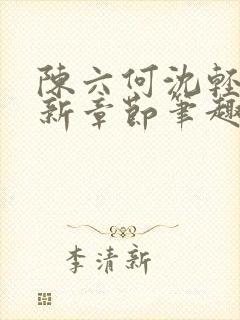 陳六何沈輕
新章節筆趣
李清新